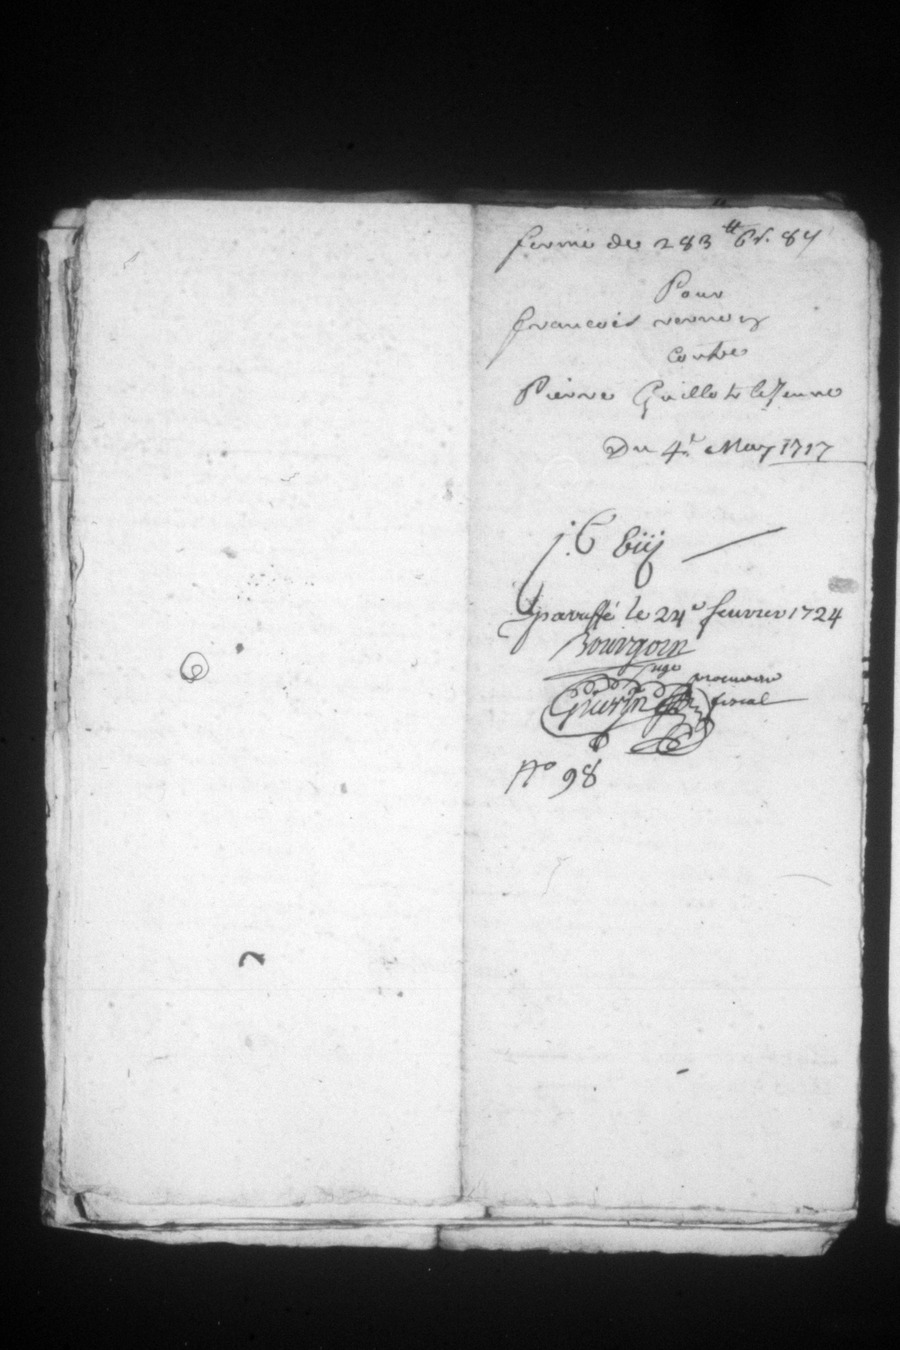 ferme de 283 ₶ 6s. 8d
Pour
francois vernoiz
contre
Pierre Guillot le Jeune
Du 4e May 1717
j. C biij
paraffé le 24e feuvrier 1724
Bourgoin
juge procureur
Guerin fiscal
No 98